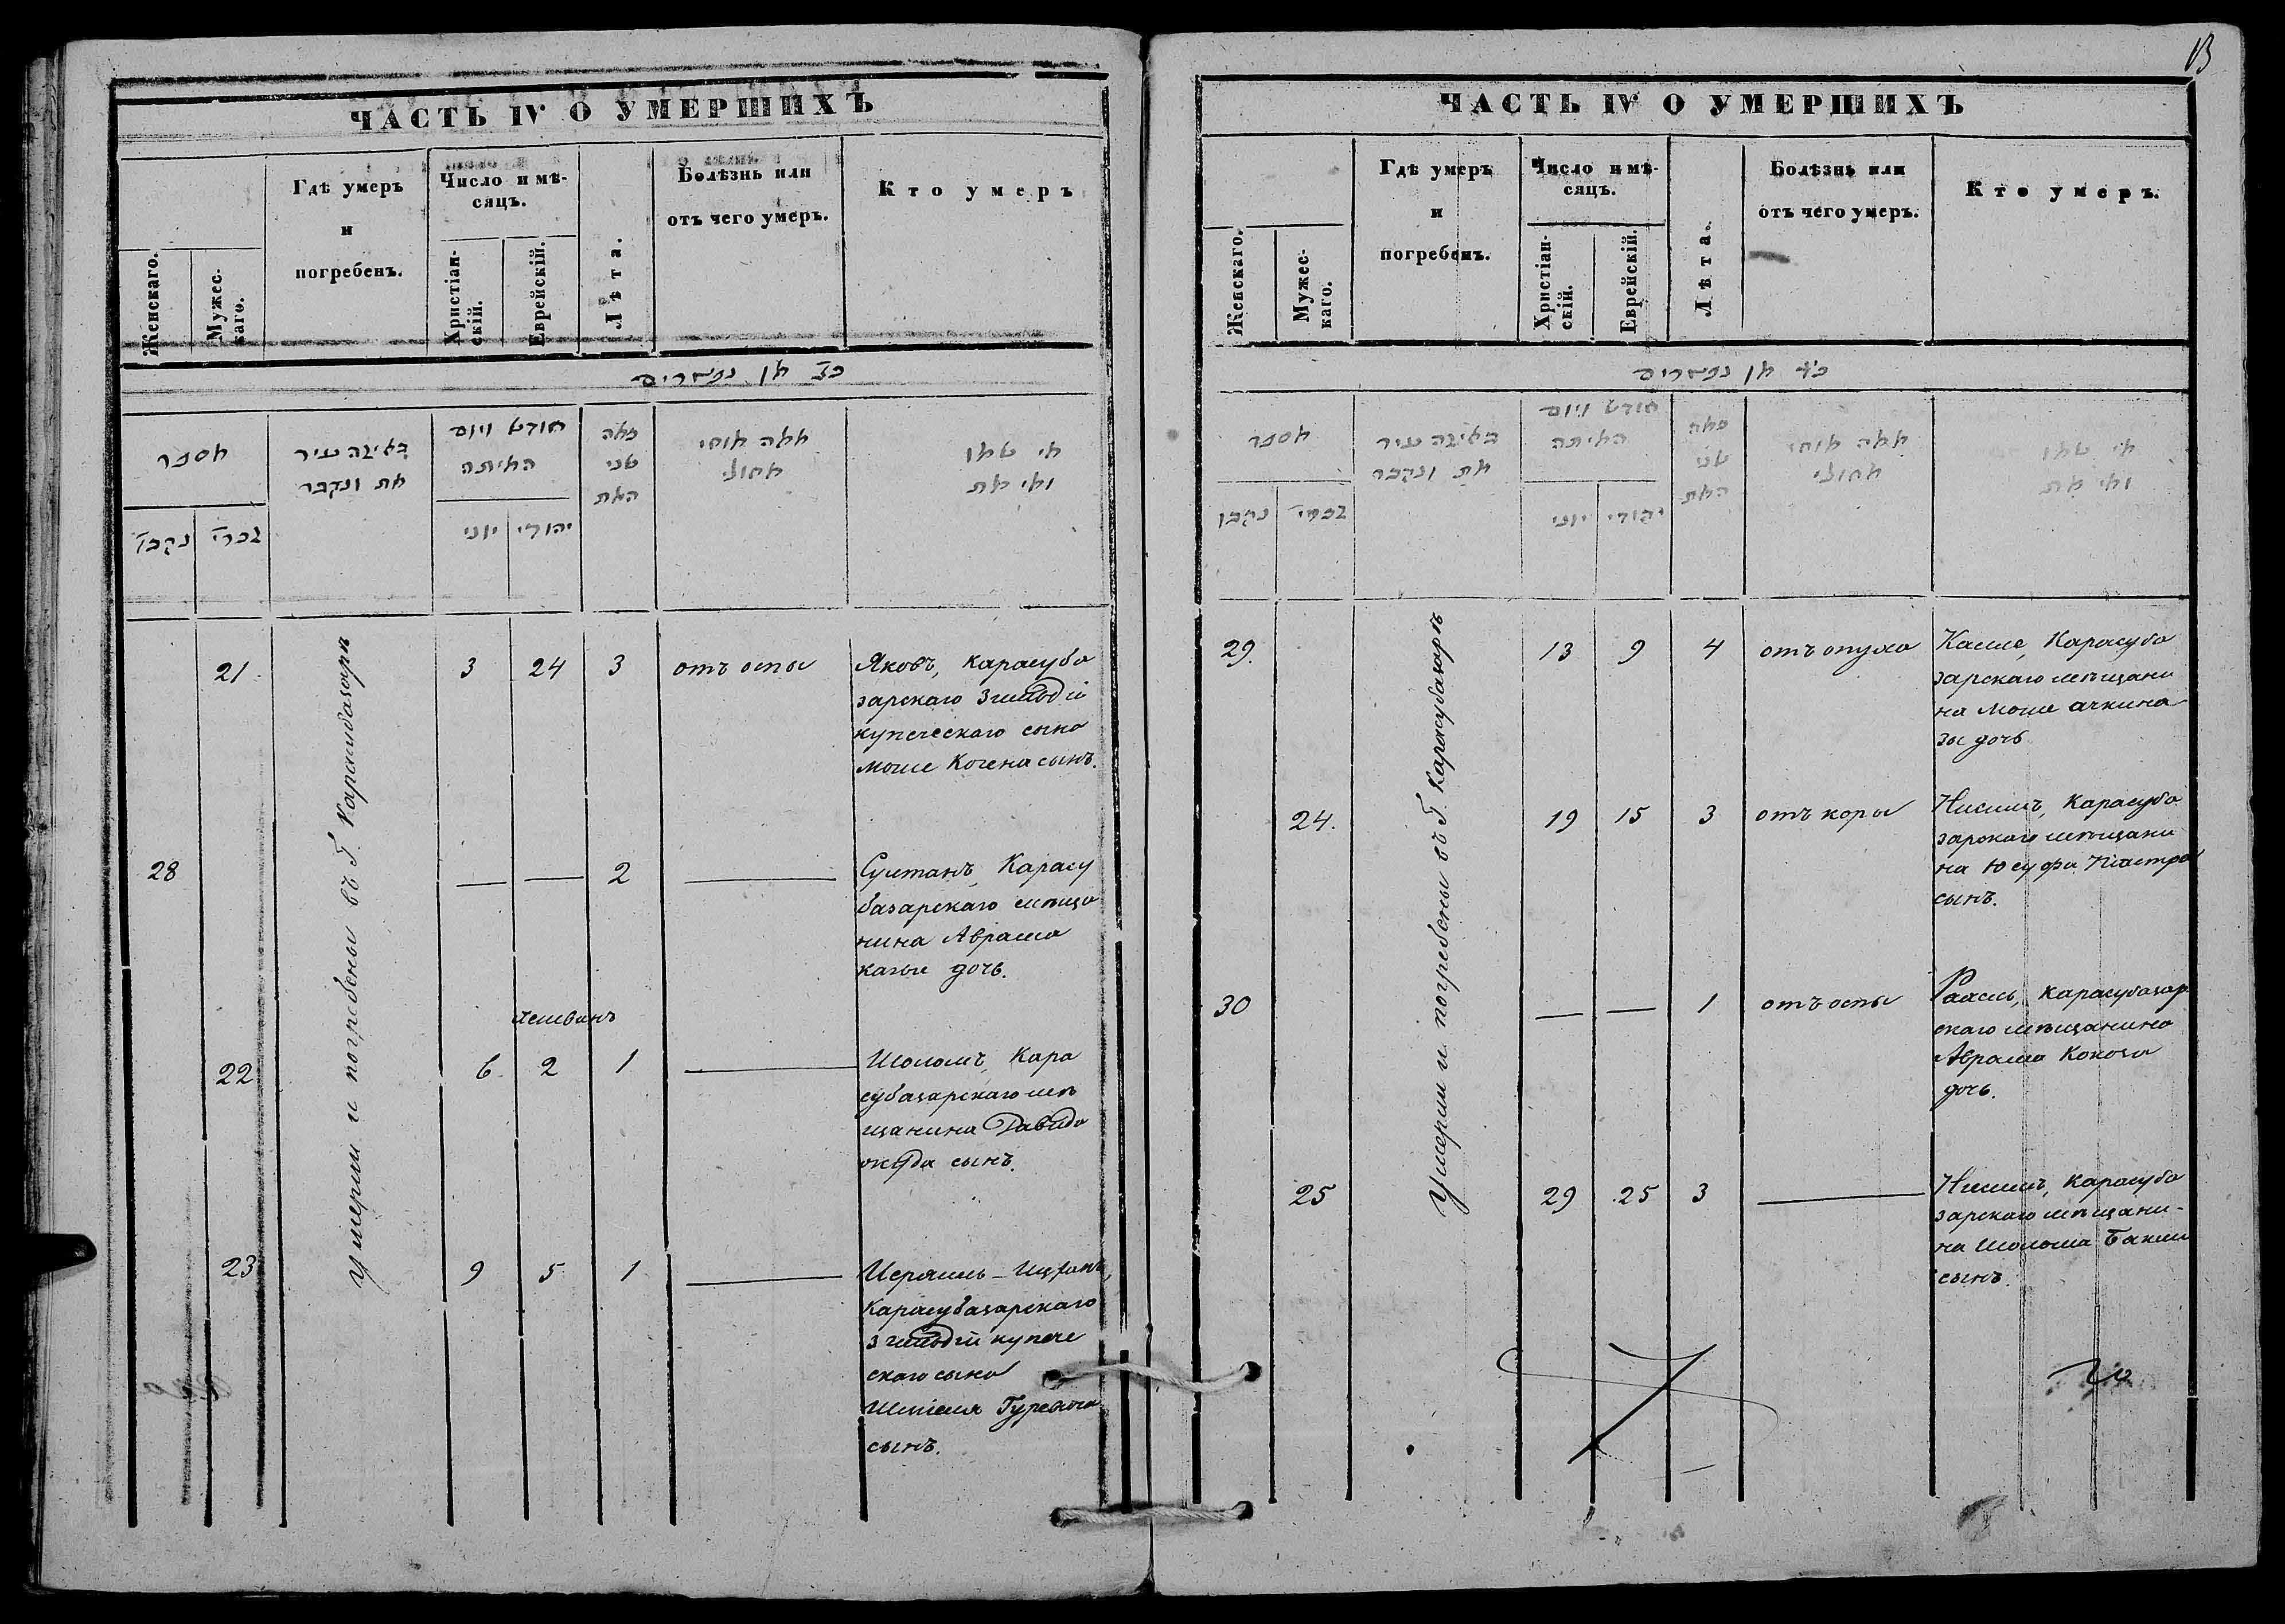 ЧАСТЬ IV О УМЕРШИХЪ
Женскаго.
Мужес-
каго.
Гдѣ умеръ
и
погребенъ.
Число и мѣ-
сяцъ.
Христіан-
скій.
Еврейскій.
Лѣта.
Болѣзнь или
отъ чего умеръ.
Кто умеръ
מספר
נקבו
זכרו
באיזה עיר
מת ונקבר
חודש ויום
המיתה
יוני
יהודי
כמה
שני
המת
ממה ומחי
מחולי
מי שמו
ומי מת
Умерши и погребены въ Г. Карасубазарѣ
21.
3
24
3
отъ оспы
Яковъ, Карасуба
зарскаго 3 гильдій
купеческаго сына
Моше Когена сынъ.
28
—
—
2
—
Султанъ, Карасу
базарскаго мѣща
нина Аврама
дочь.
Хешванъ
22
6
2
1
—
Шоломъ, Кара
субазарскаго мѣ
щанина Давида
сынъ.
23
9
5
1
—
Карасубазарскаго
3 гильдій купече
скаго сына
Гуревича
сынъ.
13
ЧАСТЬ IV О УМЕРШИХЪ
Женскаго.
Мужес-
каго.
Гдѣ умеръ
и
погребенъ.
Число и мѣ-
сяцъ.
Христіан-
скій.
Еврейскій.
Лѣта.
Болѣзнь или
отъ чего умеръ.
Кто умеръ.
מספר
נקבו
זכרו
באיזה עיר
מת ונקבר
חודש ויום
המיתה
יוני
יהודי
כמה
שני
המת
ממה ומחי
מחולי
מי שמו
ומי מת
Умерши и погребены въ Г. Карасубазарѣ
29.
13
9
4
отъ опуха
Карасуба
зарскаго мѣщани
на Моше Ачкина
зы дочь
24.
19
15
3
отъ коры
Нисимъ, Карасуба
зарскаго мѣщани
на Юсуфа
сынъ.
30
—
—
1
отъ оспы
Карасубазар
скаго мѣщанина
Аврама Кокоза
дочь.
25
29
25
3
—
Нисимъ, Карасуба
зарскаго мѣщани-
на Шолома Бакши
сынъ.